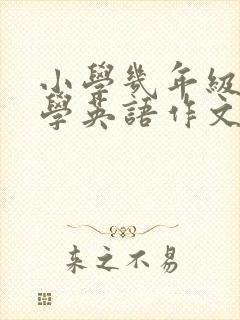 小學幾年級
學英語作文
來之不易